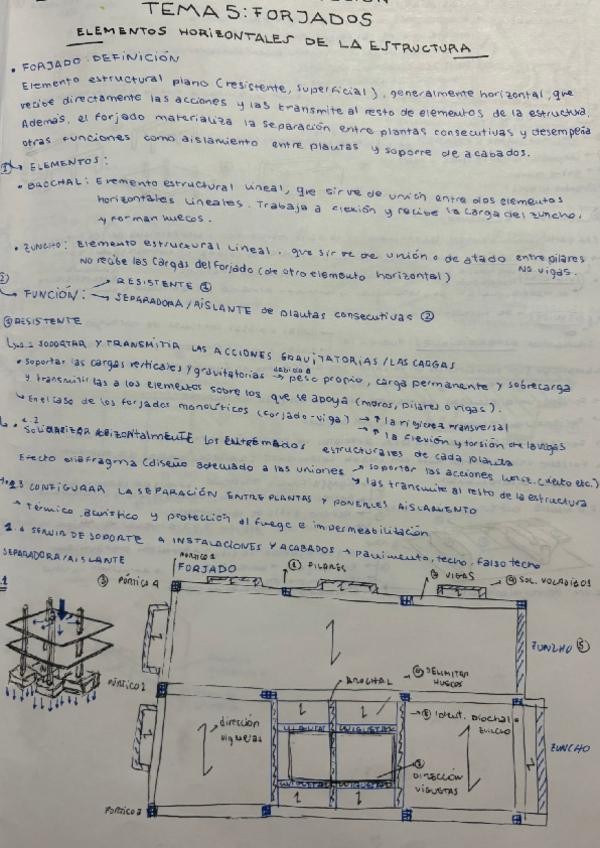 TEMA 5: FORJADOS
ELEMENTOS HORIZONTALES DE LA ESTRUCTURA
• FORJADO: DEFINICIÓN
Elemento estructural plano (resistente, superficial), generalmente horizontal, que
recibe directamente las acciones y las transmite al resto de elementos de la estructura.
Además, el forjado materializa la separación entre plantas consecutivas y desempeña
otras funciones como aislamiento entre plantas y soporte de acabados.
① ELEMENTOS:
• BROCHAL: Elemento estructural lineal, que sirve de unión entre dos elementos
horizontales lineales. Trabaja a flexión y recibe la carga del zuncho,
y forman huecos.
• ZUNCHO: Elemento estructural lineal, que sirve de unión o de atado entre pilares
NO recibe las cargas del forjado (de otro elemento horizontal) NO vigas.
② FUNCIÓN: → RESISTENTE ①
→ SEPARADORA/AISLANTE de plantas consecutivas ②
① RESISTENTE
SOPORTAR Y TRANSMITIR LAS ACCIONES GRAVITATORIAS/LAS CARGAS
• Soportar las cargas verticales y gravitatorias debido a → peso propio, carga permanente y sobrecarga
y transmitirlas a los elementos sobre los que se apoya (muros, pilares o vigas).
En el caso de los forjados monolíticos (forjado-viga) → ↑ la rigidez transversal
→ ↑ la flexión y torsión de la vigas
Solidarizar horizontalmente los entramados estructurales de cada planta
Efecto diafragma (diseño adecuado a las uniones → soportar las acciones horiz. (viento etc.)
las transmite al resto de la estructura
1.3 CONFIGURAR LA SEPARACIÓN ENTRE PLANTAS Y PONERLES AISLAMIENTO
→ Térmico, acústico y protección al fuego e impermeabilización
1.4 SERVIR DE SOPORTE A INSTALACIONES Y ACABADOS → pavimento, techo, falso techo
SEPARADORA/AISLANTE
PÓRTICO 1
FORJADO
③ PÓRTICO 4
① PILARES
② VIGAS
④ SOL. VOLADIZOS
ZUNCHO ⑤
PÓRTICO 2
BROCHAL
⑥ DELIMITAR HUECOS
dirección viguetas
VIGUETAS
ZUNCHO
DIRECCIÓN VIGUETAS
PÓRTICO 3